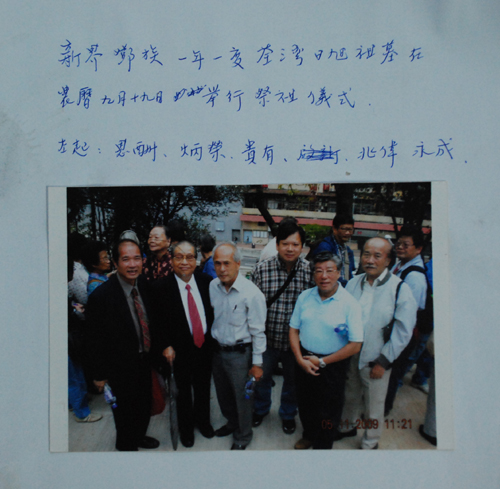 新界鄧族一年一度荃灣日旭祖墓在
農曆九月十九日舉行祭祖儀式.
左起: 恩酬、炳榮.貴有、兆偉 永成.
05 11 2009 11:21